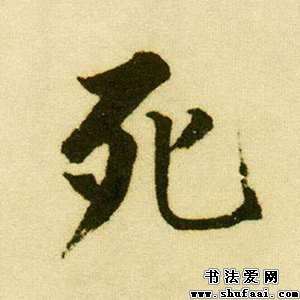 死
书法爱网
www.shufaai.com